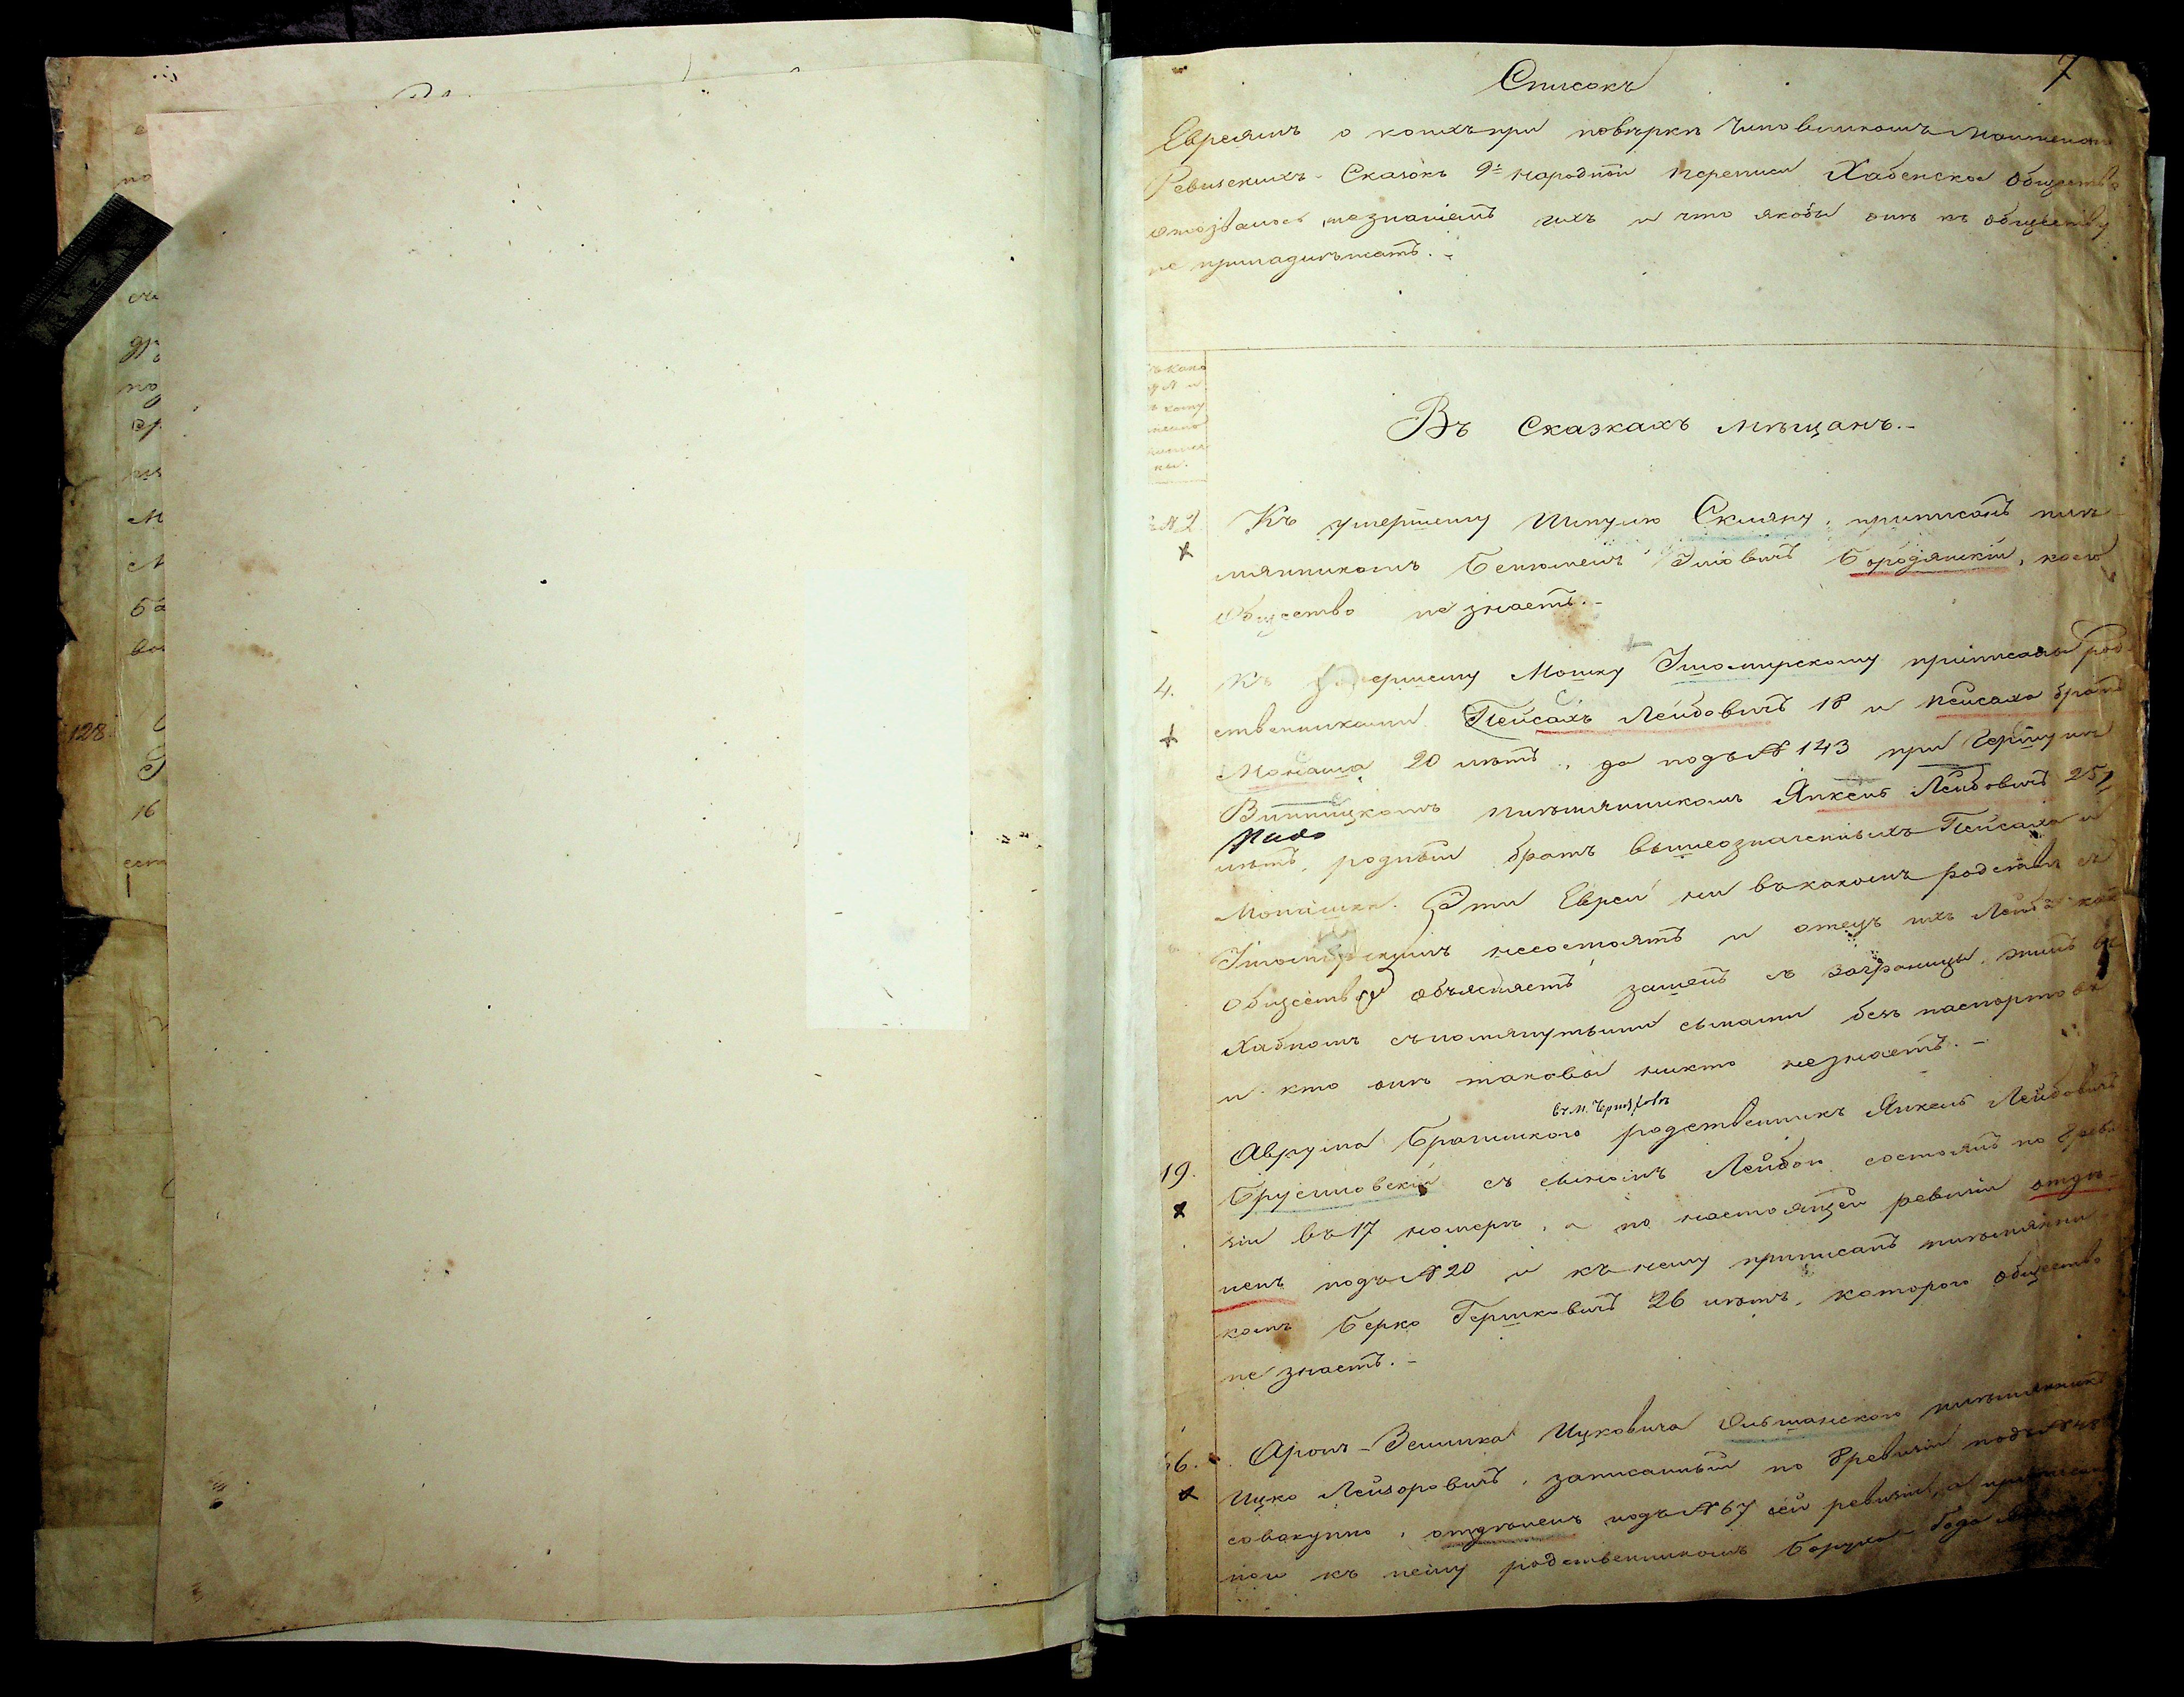 7
Списокъ
Евреямъ о коихъ при повѣркѣ Чиновникомъ
Ревизскихъ Сказокъ 9й народной переписи Хабенское Общество
отозвалось незнаніемъ ихъ и что якобы они къ обществу
не принадлѣжатъ.
Въ Сказкахъ мѣщанъ.-
№ 2. Къ умершему Шмулю Скляру, приписанъ пле-
мянникомъ Беньюменъ Бородянскій, коего
Общество не знаетъ.-
4. Къ умершему Мошку Житомирскому приписаны род-
ственниками Пейсахъ Лейбовичъ 18 и Пейсаха братъ
Монаша 20 лѣтъ, да подъ № 143 при Гершунѣ
Винницкомъ племянникомъ Янкель Лейбовичъ 25
лѣтъ, родный братъ вышеозначенныхъ Пейсаха и
Монашка. Эти Евреи ни въ какомъ родствѣ съ
Житомирскимъ несостоятъ и отецъ ихъ Лейба какъ
Общество объясняетъ зашелъ съ заграницы, жилъ въ
Хабномъ съ помянутыми сынами безъ паспортовъ
и кто они таковы никто незнаетъ.-
19. Аврума Брагинского родственникъ Янкель Лейбовичъ
Брусиловскій съ сыномъ Лейбою состоялъ по 8 реви-
зіи въ 17 номерѣ, а по настоящей ревизіи отдѣ-
ленъ подъ № 20 и къ нему приписанъ племянни-
комъ Берко Гершковичъ 26 лѣтъ, которого Общество
не знаетъ.-
66. Аронъ-Зелика Ицковича Ольшанского племянникъ
Ицко Лейзоровичъ, записанный по 8 ревизіи подъ № 48
совокупно, отдѣленъ подъ № 67 сей ревизіи, а
къ нему родственникомъ Боруха
128
16